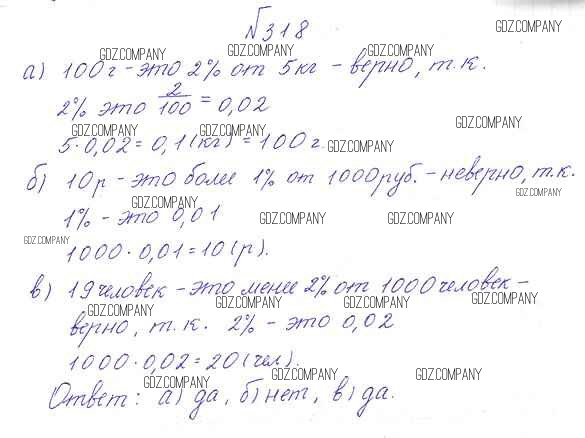 №318
GDZ.COMPANY
GDZ.COMPANY GDZ.COMPANY GDZ.COMPANY
а) 100 г - это 2% от 5 кг - верно, т.к.
2% это 2/100 = 0,02
GDZ.COMPANY GDZ.COMPANY GDZ.COMPANY
5·0,02 = 0,1 (кг) = 100 г.
GDZ.COMPANY
б) 10 р - это более 1% от 1000 руб. - неверно, т.к.
GDZ.COMPANY GDZ.COMPANY
1% - это 0,01
GDZ.COMPANY GDZ.COMPANY
GDZ.COMPANY
1000·0,01 = 10 (р).
в) 19 человек - это менее 2% от 1000 человек -
GDZ.COMPANY GDZ.COMPANY GDZ.COMPANY GDZ.COMPANY
верно, т.к. 2% - это 0,02
1000·0,02 = 20 (чел).
GDZ.COMPANY GDZ.COMPANY GDZ.COMPANY
Ответ: а) да, б) нет, в) да.